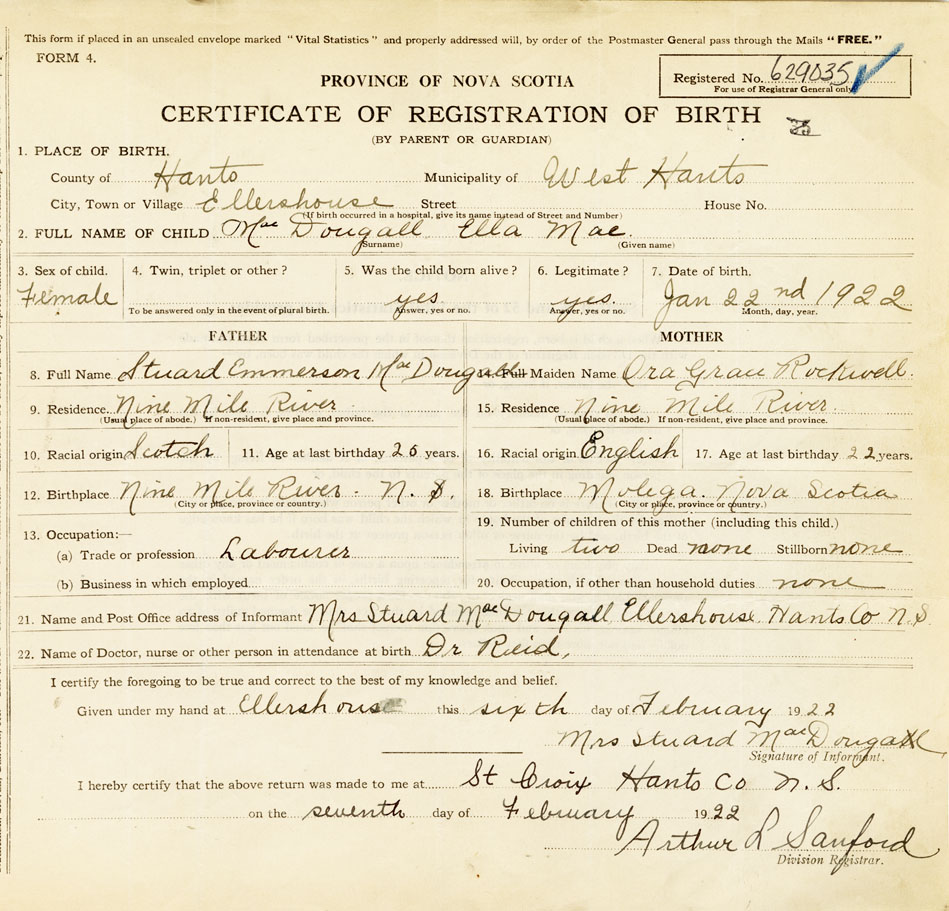 This form if placed in an unsealed envelope marked "Vital Statistics" and properly addressed will, by order of the Postmaster General pass through the Mails "FREE."
FORM 4.
Registered No. 629035
For use of Registrar General only
PROVINCE OF NOVA SCOTIA
CERTIFICATE OF REGISTRATION OF BIRTH
(BY PARENT OR GUARDIAN)
1. PLACE OF BIRTH.
County of Hants Municipality of West Hants
City, Town or Village Ellershouse Street House No.
(If birth occurred in a hospital, give its name instead of Street and Number)
2. FULL NAME OF CHILD MacDougall Ella Mae.
(Surname) (Given name)
3. Sex of child. 4. Twin, triplet or other? 5. Was the child born alive? 6. Legitimate? 7. Date of birth.
Female yes. yes. Jan 22nd 1922
To be answered only in the event of plural birth. Answer, yes or no. Answer, yes or no. Month, day, year.
FATHER MOTHER
8. Full Name Stuard Emmerson MacDougall 14. Full Maiden Name Ora Grace Rockwell.
9. Residence. Nine Mile River. 15. Residence Nine Mile River.
(Usual place of abode.) If non-resident, give place and province. (Usual place of abode.) If non-resident, give place and province.
10. Racial origin Scotch 11. Age at last birthday 25 years. 16. Racial origin English 17. Age at last birthday 22 years.
12. Birthplace Nine Mile River. N.S. 18. Birthplace Molega. Nova Scotia
(City or place, province or country.) (City or place, province or country.)
13. Occupation:— 19. Number of children of this mother (including this child.)
(a) Trade or profession Labourer Living two Dead none Stillborn none
(b) Business in which employed 20. Occupation, if other than household duties none
21. Name and Post Office address of Informant Mrs Stuard MacDougall Ellershouse Hants Co N.S.
22. Name of Doctor, nurse or other person in attendance at birth Dr Reid,
I certify the foregoing to be true and correct to the best of my knowledge and belief.
Given under my hand at Ellershouse this sixth day of February 1922
Mrs Stuard MacDougall
Signature of Informant.
I hereby certify that the above return was made to me at St Croix Hants Co N.S.
on the seventh day of February 1922
Arthur L Sanford
Division Registrar.